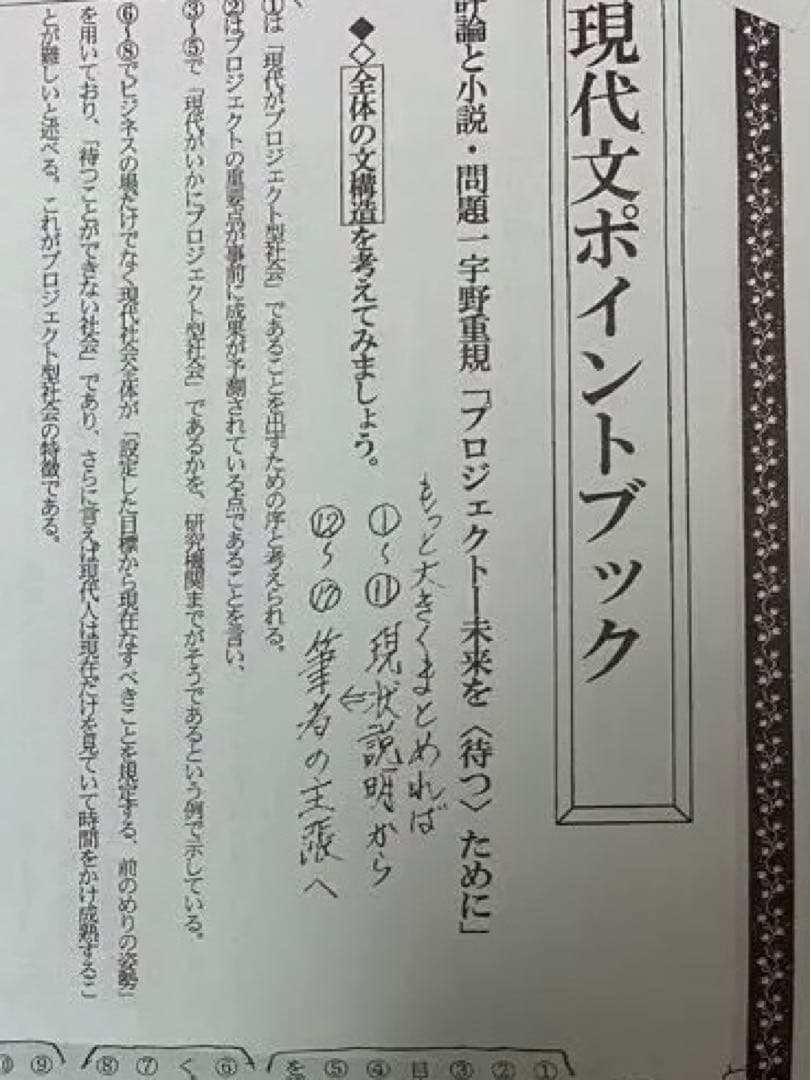 現代文ポイントブック
評論と小説・問題一宇野重規「プロジェクト―未来を〈待つ〉ために」
◆◇全体の文構造を考えてみましょう。
もっと大きくまとめれば
①～⑪現状説明から
⇐
⑫～⑰筆者の主張へ
①は「現代がプロジェクト型社会」であることを出すための序と考えられる。
②はプロジェクトの重要点が事前に成果が予測されている点であることを言い、
③～⑤で「現代がいかにプロジェクト型社会」であるかを、研究機関までがそうであるという例で示している。
⑥～⑧でビジネスの場だけでなく現代社会全体が「設定した目標から現在なすべきことを規定する、前のめりの姿勢」
を用いており、「待つことができない社会」であり、さらに言えば現代人は現在だけを見ていて時間をかけ成熟するこ
とが難しいと述べる。これがプロジェクト型社会の特徴である。
①
②
③
目
④
⑤
を
⑥
く
⑦
⑧
⑨